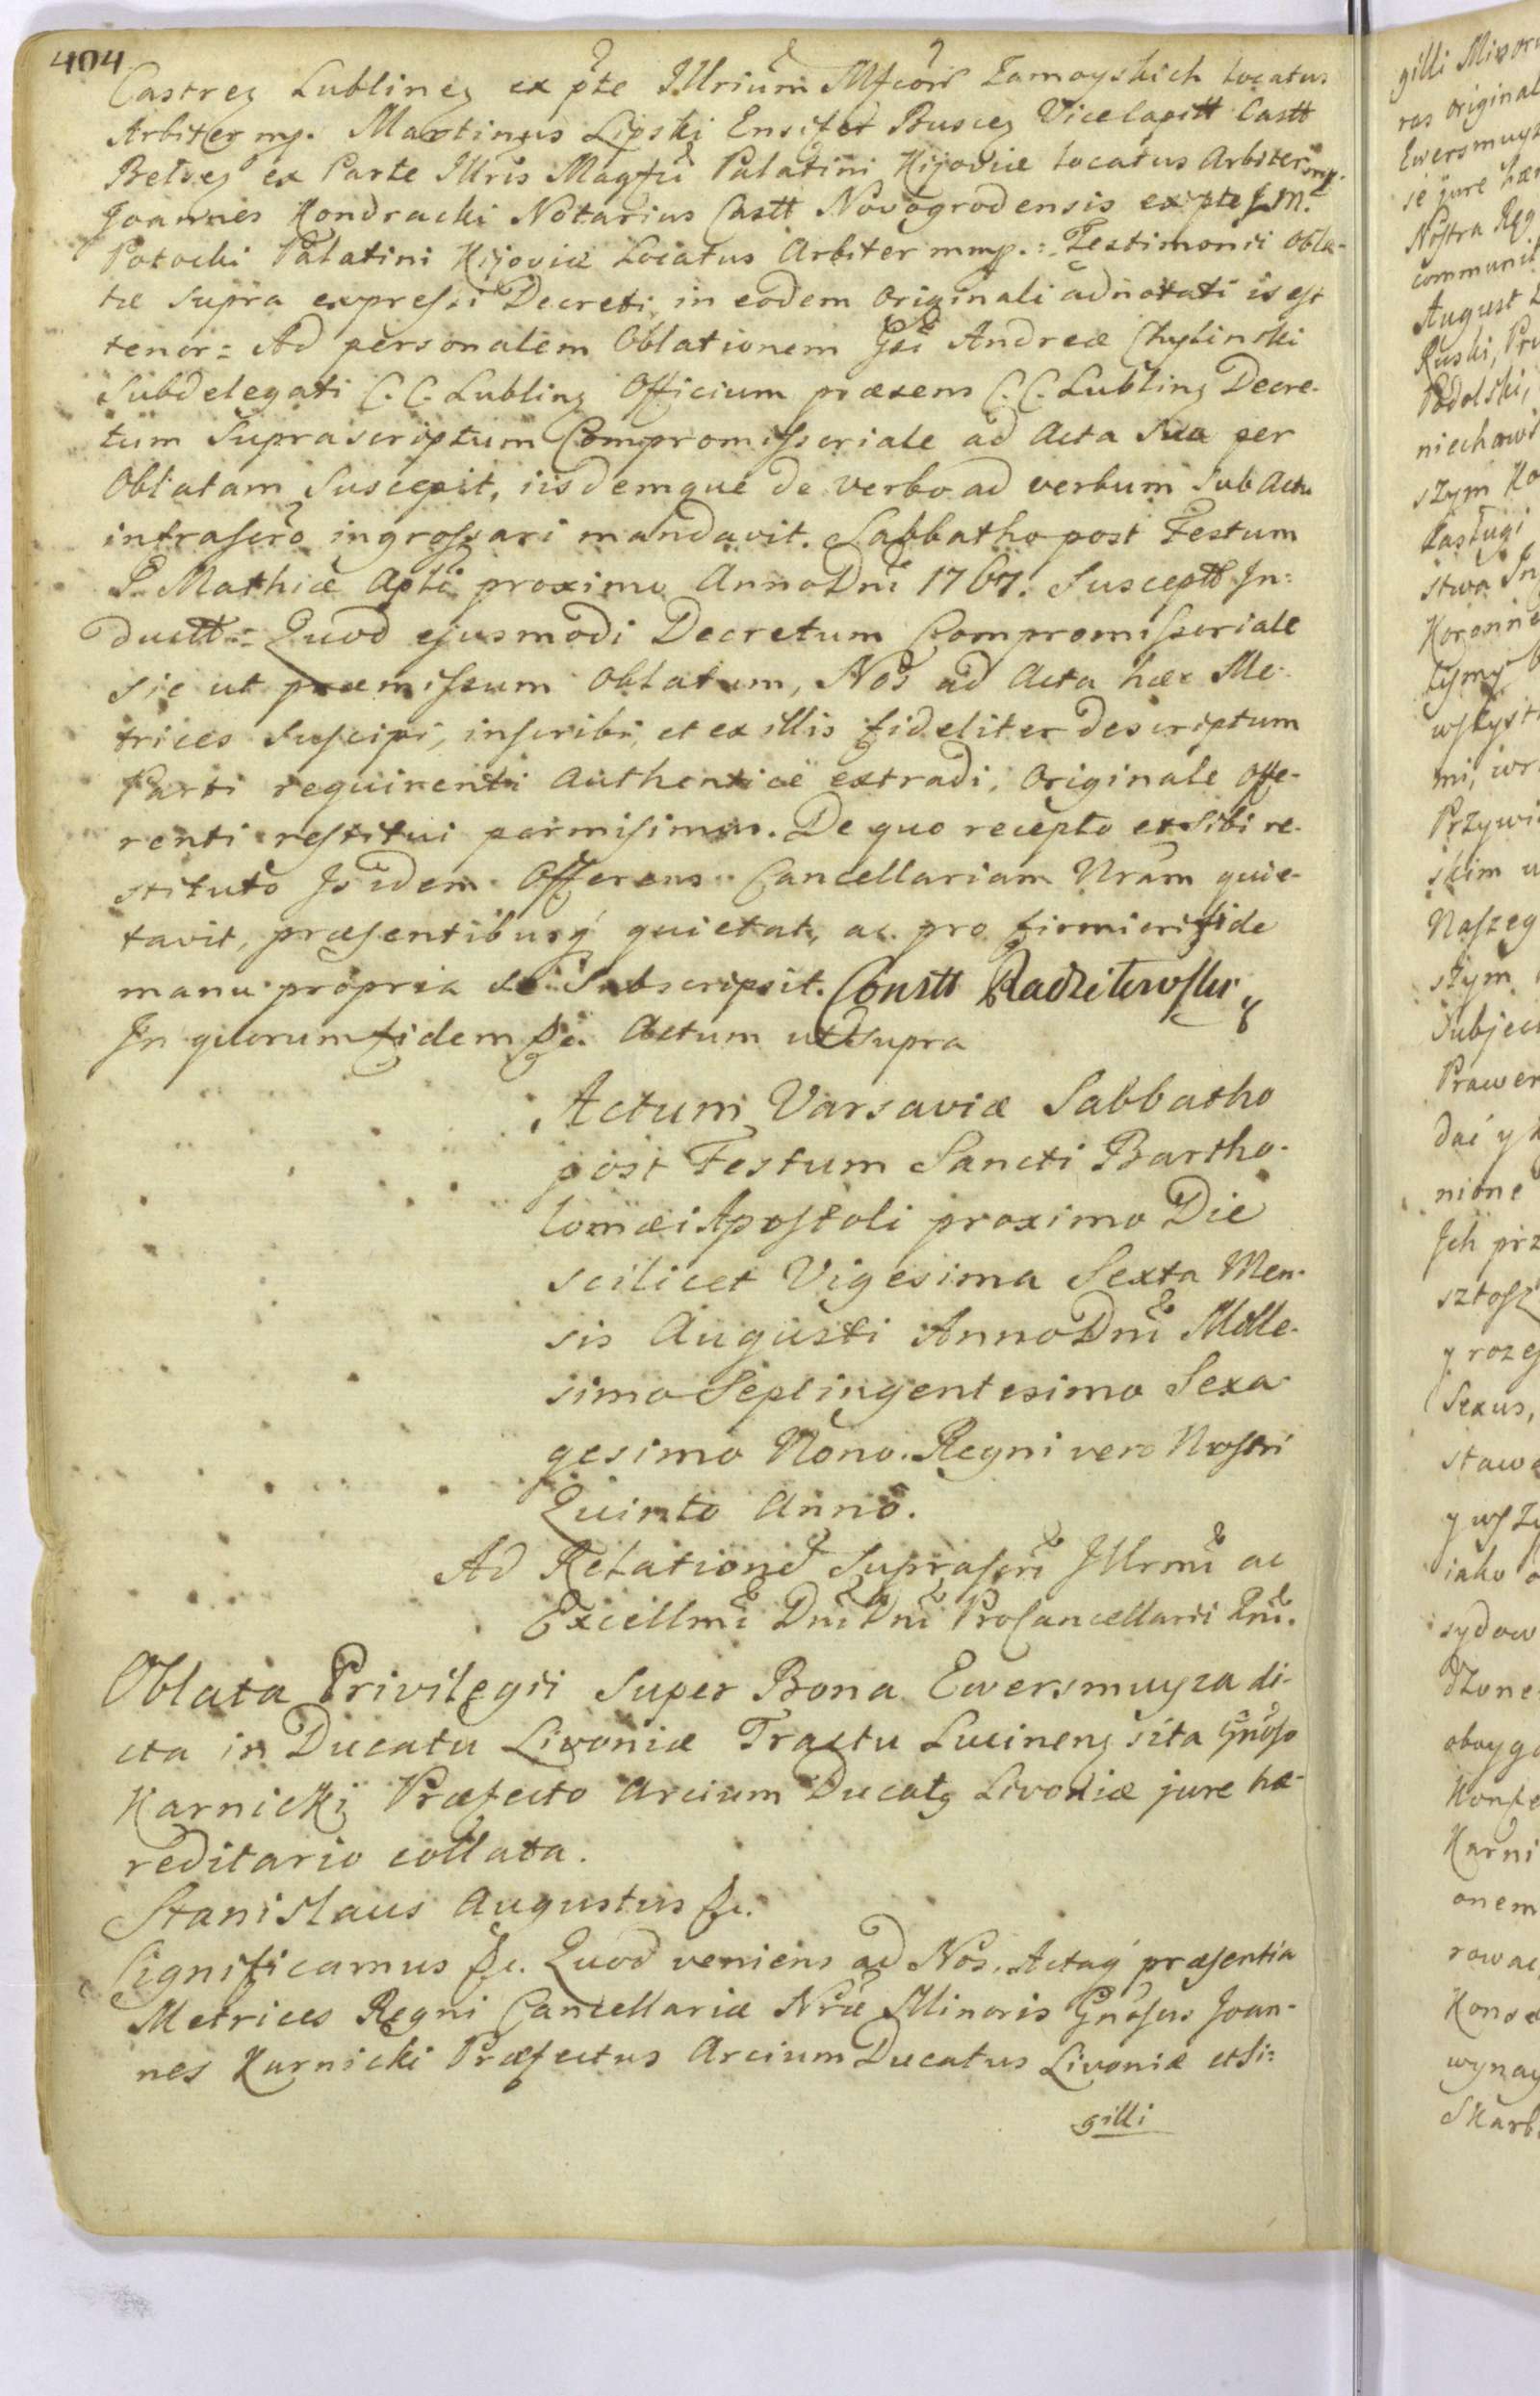 404
Castreg Lublineg ex pte Illrium Mfcor Zamoyskich locatus
Arbiter mp. Martinus Lipski Ensifer Busceg Vicecapitt Castt
Belzeg ex Parte Illris Magfci Palatini Kijoviæ locatus Arbiter mp.
Joannes Kondracki Notarius Castt Novogrodensis ex pte J.M.
Potocki Palatini Kijoviæ Locatus Arbiter mmp.: Testimonii Obla-
tæ supra expressi Decreti, in eodem Originali adnotati is est
tenor = Ad personalem Oblationem Gsi Andreæ Chylinski
Subdelegati C. C. Lubling Officium præsens C. C. Lubling Decre-
tum Suprascriptum Compromissoriale ad Acta Sua per
Oblatam Suscepit, iisdemque de verbo ad verbum Sub Actu
infrascro ingrossari mandavit. Sabbatho post Festum
S. Mathiæ Apli proximo Anno Dni 1767. Susceptt In-
ductt = Quod ejusmodi Decretum Compromissoriale
sic ut præmissum Oblatum, Nos ad Acta hæc Me-
trices suscipi, inscribi, et ex illis fideliter descriptum
Parti requirenti Authenticè extradi, Originale Offe-
renti restitui permisimus. De quo recepto et sibi re-
stituto Is idem Offerens Cancellariam Nram quie-
tavit, præsentibusq quietat, ac pro firmiori fide
manu propria se Subscripsit. Constt Radzitewski
In quorum fidem &c. Actum ut Supra
Actum Varsaviæ Sabbatho
post Festum Sancti Bartho-
lomæi Apostoli proximo Die
scilicet Vigesima Sexta Men-
sis Augusti Anno Dni Mille-
simo Septingentesimo Sexa-
gesimo Nono. Regni vero Nostri
Quinto Anno.
Ad Relatione Suprascri Illrmi ac
Excellmi Dni Dni ProCancellarii Rni.
Oblata Privilegii Super Bona Ewersmuyza di-
cta in Ducatu Livoniæ Tractu Lucineng sita Gnoso
Karnicki Præfecto Arcium Ducatg Livoniæ jure hæ-
reditario collata.
Stanislaus Augustus &c.
Significamus &c. Quod veniens ad Nos, Actaq præsentia
Metrices Regni Cancellariæ Nræ Minoris Gnosus Joan-
nes Karnicki Præfectus Arcium Ducatus Livoniæ et Si=
gilli
gilli Minor
ras original
Ewersmuyz
se jure hær
Nostra Reg
August
Ruski, Pru
Podolski,
niechows
szym Ko
stwa In
mi,
Przywi
skim
Naszeg
Subjec
Prawem
nione
Ich prz
y rozeg
Sexus,
stawa
iako
sydow
dzone
Karni
onem
rowac
wynay
Skarb